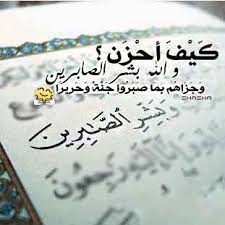 كَيْفَ أحْزَن ؟
و الله بشر الصابرين
وَجَزَاهُم بِمَا صَبَرُوا جَنَّةً وَحَرِيرا
SHASHA
وَبَشِّرِ الصَّٰبِرِينَ